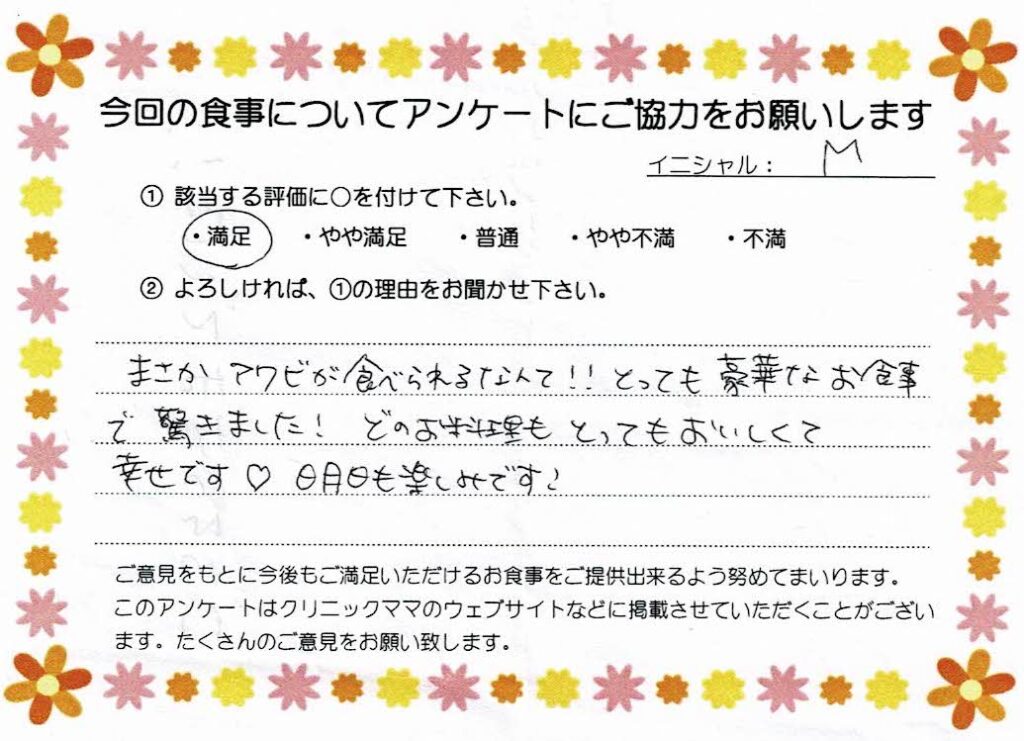 今回の食事についてアンケートにご協力をお願いします
イニシャル： M
① 該当する評価に〇を付けて下さい。
・満足 ・やや満足 ・普通 ・やや不満 ・不満
② よろしければ、①の理由をお聞かせ下さい。
まさか アワビが食べられるなんて！！とっても 豪華な お食事
で 驚きました！ どのお料理も とってもおいしくて
幸せです♡ 明日も楽しみです！
ご意見をもとに今後もご満足いただけるお食事をご提供出来るよう努めてまいります。
このアンケートはクリニックママのウェブサイトなどに掲載させていただくことがござい
ます。たくさんのご意見をお願い致します。